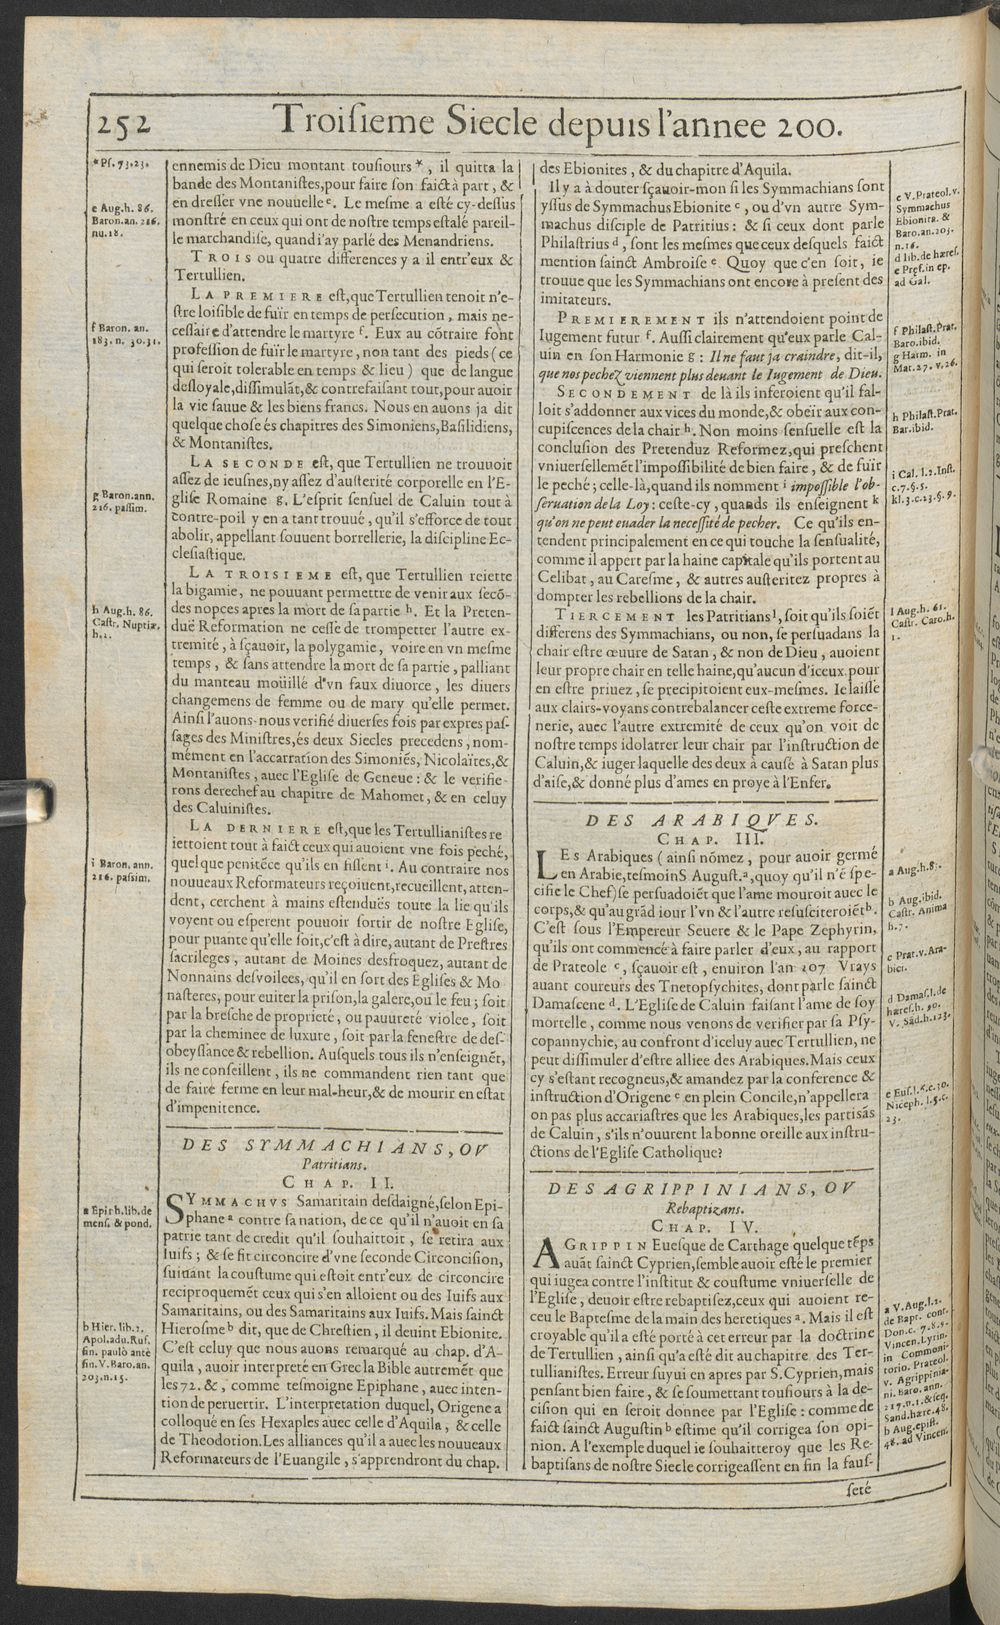 252
Troisieme Siecle depuis l'annee 200.
*Ps. 73.23.
e Aug.h. 86.
Baron.an. 216.
nu.18.
f Baron. an.
183. n. 30.31.
g Baron.ann.
216. passim.
h Aug.h. 86.
Castr. Nuptiæ.
h.2.
i Baron. ann.
216. passim.
a Epiph.lib.de
mens. & pond.
b Hier. lib.2.
Apol.adu.Ruf.
fin. paulò antè
fin.V.Baro.an.
203.n.15.
ennemis de Dieu montant tousiours *, il quitta la
bande des Montanistes,pour faire son faict à part, &
en dresser vne nouuelle e. Le mesme a esté cy-dessus
monstré en ceux qui ont de nostre temps estalé pareil-
le marchandise, quand i'ay parlé des Menandriens.
TROIS ou quatre differences y a il entr'eux &
Tertullien.
LA PREMIERE est,que Tertullien tenoit n'e-
stre loisible de fuïr en temps de persecution, mais ne-
cessaire d'attendre le martyre f. Eux au cõtraire font
profession de fuïr le martyre, non tant des pieds (ce
qui seroit tolerable en temps & lieu) que de langue
desloyale,dissimulãt,& contrefaisant tout,pour auoir
la vie sauue & les biens francs. Nous en auons ja dit
quelque chose és chapitres des Simoniens,Basilidiens,
& Montanistes.
LA SECONDE est, que Tertullien ne trouuoit
assez de ieusnes,ny assez d'austerité corporelle en l'E-
glise Romaine g. L'esprit sensuel de Caluin tout à
contre-poil y en a tant trouué, qu'il s'efforce de tout
abolir, appellant souuent borrellerie, la discipline Ec-
clesiastique.
LA TROISIEME est, que Tertullien reiette
la bigamie, ne pouuant permettre de venir aux secõ-
des nopces apres la mort de sa partie h. Et la Preten-
duë Reformation ne cesse de trompetter l'autre ex-
tremité, à sçauoir, la polygamie, voire en vn mesme
temps, & sans attendre la mort de sa partie, palliant
du manteau moüillé d'vn faux diuorce, les diuers
changemens de femme ou de mary qu'elle permet.
Ainsi l'auons-nous verifié diuerses fois par expres pas-
sages des Ministres,és deux Siecles precedens, nom-
mément en l'accarration des Simoniẽs, Nicolaïtes,&
Montanistes, auec l'Eglise de Geneue: & le verifie-
rons derechef au chapitre de Mahomet, & en celuy
des Caluinistes.
LA DERNIERE est,que les Tertullianistes re
iettoient tout à faict ceux qui auoient vne fois peché,
quelque penitẽce qu'ils en fissent i. Au contraire nos
nouueaux Reformateurs reçoiuent,recueillent, atten-
dent, cerchent à mains estenduës toute la lie qu'ils
voyent ou esperent pouuoir sortir de nostre Eglise,
pour puante qu'elle soit,c'est à dire, autant de Prestres
sacrileges, autant de Moines desfroquez, autant de
Nonnains desvoilees, qu'il en sort des Eglises & Mo
nasteres, pour euiter la prison,la galere,ou le feu; soit
par la bresche de proprieté, ou pauureté violee, soit
par la cheminee de luxure, soit par la fenestre de des-
obeyssance & rebellion. Ausquels tous ils n'enseignẽt,
ils ne conseillent, ils ne commandent rien tant que
de faire ferme en leur mal-heur,& de mourir en estat
d'impenitence.
DES SYMMACHIANS, OV
Patritians.
CHAP. II.
SYMMACHVS Samaritain desdaigné,selon Epi-
phane a contre sa nation, de ce qu'il n'auoit en sa
patrie tant de credit qu'il souhaittoit, se retira aux
Iuifs; & se fit circoncire d'vne seconde Circoncision,
suiuant la coustume qui estoit entr'eux de circoncire
reciproquemẽt ceux qui s'en alloient ou des Iuifs aux
Samaritains, ou des Samaritains aux Iuifs. Mais sainct
Hierosme b dit, que de Chrestien, il deuint Ebionite.
C'est celuy que nous auons remarqué au chap. d'A-
quila, auoir interpreté en Grec la Bible autremẽt que
les 72. &, comme tesmoigne Epiphane, auec inten-
tion de peruertir. L'interpretation duquel, Origene a
colloqué en ses Hexaples auec celle d'Aquila, & celle
de Theodotion.Les alliances qu'il a auec les nouueaux
Reformateurs de l'Euangile, s'apprendront du chap.
des Ebionites, & du chapitre d'Aquila.
Il y a à douter sçauoir-mon si les Symmachians sont
yssus de Symmachus Ebionite c, ou d'vn autre Sym-
machus disciple de Patritius: & si ceux dont parle
Philastrius d, sont les mesmes que ceux desquels faict
mention sainct Ambroise e. Quoy que c'en soit, ie
trouue que les Symmachians ont encore à present des
imitateurs.
PREMIEREMENT ils n'attendoient point de
Iugement futur f. Aussi clairement qu'eux parle Cal-
uin en son Harmonie g: Il ne faut ja craindre, dit-il,
que nos pechez viennent plus deuant le Iugement de Dieu.
SECONDEMENT de là ils inferoient qu'il fal-
loit s'addonner aux vices du monde,& obeïr aux con-
cupiscences de la chair h. Non moins sensuelle est la
conclusion des Pretenduz Reformez,qui preschent
vniuersellemẽt l'impossibilité de bien faire, & de fuïr
le peché; celle-là,quand ils nomment i impossible l'ob-
seruation de la Loy: ceste-cy, quands ils enseignent k
qu'on ne peut euader la necessité de pecher. Ce qu'ils en-
tendent principalement en ce qui touche la sensualité,
comme il appert par la haine capitale qu'ils portent au
Celibat, au Caresme, & autres austeritez propres à
dompter les rebellions de la chair.
TIERCEMENT les Patritians l, soit qu'ils soiẽt
differens des Symmachians, ou non, se persuadans la
chair estre œuure de Satan, & non de Dieu, auoient
leur propre chair en telle haine,qu'aucun d'iceux pour
en estre priuez, se precipitoient eux-mesmes. Ie laisse
aux clairs-voyans contrebalancer ceste extreme force-
nerie, auec l'autre extremité de ceux qu'on voit de
nostre temps idolatrer leur chair par l'instruction de
Caluin,& iuger laquelle des deux à causé à Satan plus
d'aise,& donné plus d'ames en proye à l'Enfer.
DES ARABIQVES.
CHAP. III.
LES Arabiques (ainsi nõmez, pour auoir germé
en Arabie,tesmoinS August. a,quoy qu'il n'é spe-
cifie le Chef)se persuadoiẽt que l'ame mouroit auec le
corps,& qu'au grãd iour l'vn & l'autre resusciteroiẽt b.
C'est sous l'Empereur Seuere & le Pape Zephyrin,
qu'ils ont commencé à faire parler d'eux, au rapport
de Prateole c, sçauoir est, enuiron l'an 207 Vrays
auant coureurs des Tnetopsychites, dont parle sainct
Damascene d. L'Eglise de Caluin faisant l'ame de soy
mortelle, comme nous venons de verifier par sa Psy-
copannychie, au confront d'iceluy auec Tertullien, ne
peut dissimuler d'estre alliee des Arabiques. Mais ceux
cy s'estant recogneus,& amandez par la conference &
instruction d'Origene e en plein Concile,n'appellera
on pas plus accariastres que les Arabiques,les partisãs
de Caluin, s'ils n'ouurent la bonne oreille aux instru-
ctions de l'Eglise Catholique?
DES AGRIPPINIANS, OV
Rebaptizans.
CHAP. IV.
AGRIPPIN Euesque de Carthage quelque tẽps
auãt sainct Cyprien,semble auoir esté le premier
qui iugea contre l'institut & coustume vniuerselle de
l'Eglise, deuoir estre rebaptisez,ceux qui auoient re-
ceu le Baptesme de la main des heretiques a. Mais il est
croyable qu'il a esté porté à cet erreur par la doctrine
de Tertullien, ainsi qu'a esté dit au chapitre des Ter-
tullianistes. Erreur suyui en apres par S.Cyprien,mais
pensant bien faire, & se soumettant tousiours à la de-
cision qui en seroit donnee par l'Eglise: comme de
faict sainct Augustin b estime qu'il corrigea son opi-
nion. A l'exemple duquel ie souhaitteroy que les Re-
baptisans de nostre Siecle corrigeassent en fin la faus-
seté
c V.Prateol.v.
Symmachus
Ebionita. &
Baro.an.203.
n.16.
d lib.de hæres.
e Præf.in ep.
ad Gal.
f Philast.Prat.
Baro.ibid.
g Harm. in
Mat.27. v.26.
h Philast.Prat.
Bar.ibid.
i Cal. l.2.Inst.
c.7.§.5.
kl.3.c.23.§.9.
l Aug.h. 61.
Castr. Caro.h.
1.
a Aug.h.83.
b Aug.ibid.
Castr. Anima
h.7.
c Prat.v.Ara-
bici.
d Damas.l.de
hæres.h. 90.
V. Sãd.h.123.
e Eus.l.6.c.30.
Niceph. l.5.c.
23.
a V.Aug.l.2.
de Bapt. cont.
Don.c. 7.8.9.
Vincen.Lyrin.
in Commoni-
torio. Prateol.
v. Agrippinia-
ni. Baro. ann.
217.n.1.& seq.
Sand.hære.48.
b Aug.epist.
48. ad Vincen.